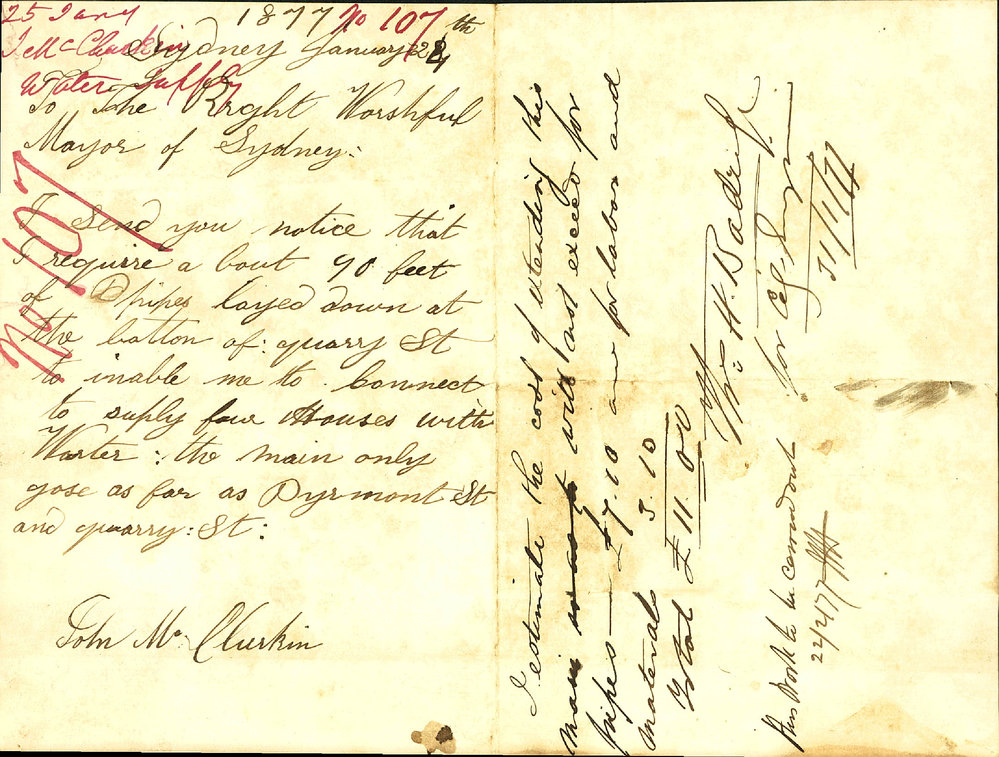 25 Jany 1877 No 107
J McClurkin
Water Supply
Sydney January 24th
To The Rght Worshful
Mayor of Sydney:
No 107
I Send you notice that
I requirre a bout 90 feet
of pipes layed down at
the bottom of: quarry St
to inable me to. Connect
to suply four Houses with
Warter: the main only
gose as far as Pyrmont St
and quarry: St:
John Mc Clurkin
I estimate the cost of extending this
main will not exceed for
pipes — £7.10 and for labor and
material 3.10
Total £11.0.0
Wm. H. Badrif
for C.E. Sur
31/1/77
This Work to be carried out
22/4/77